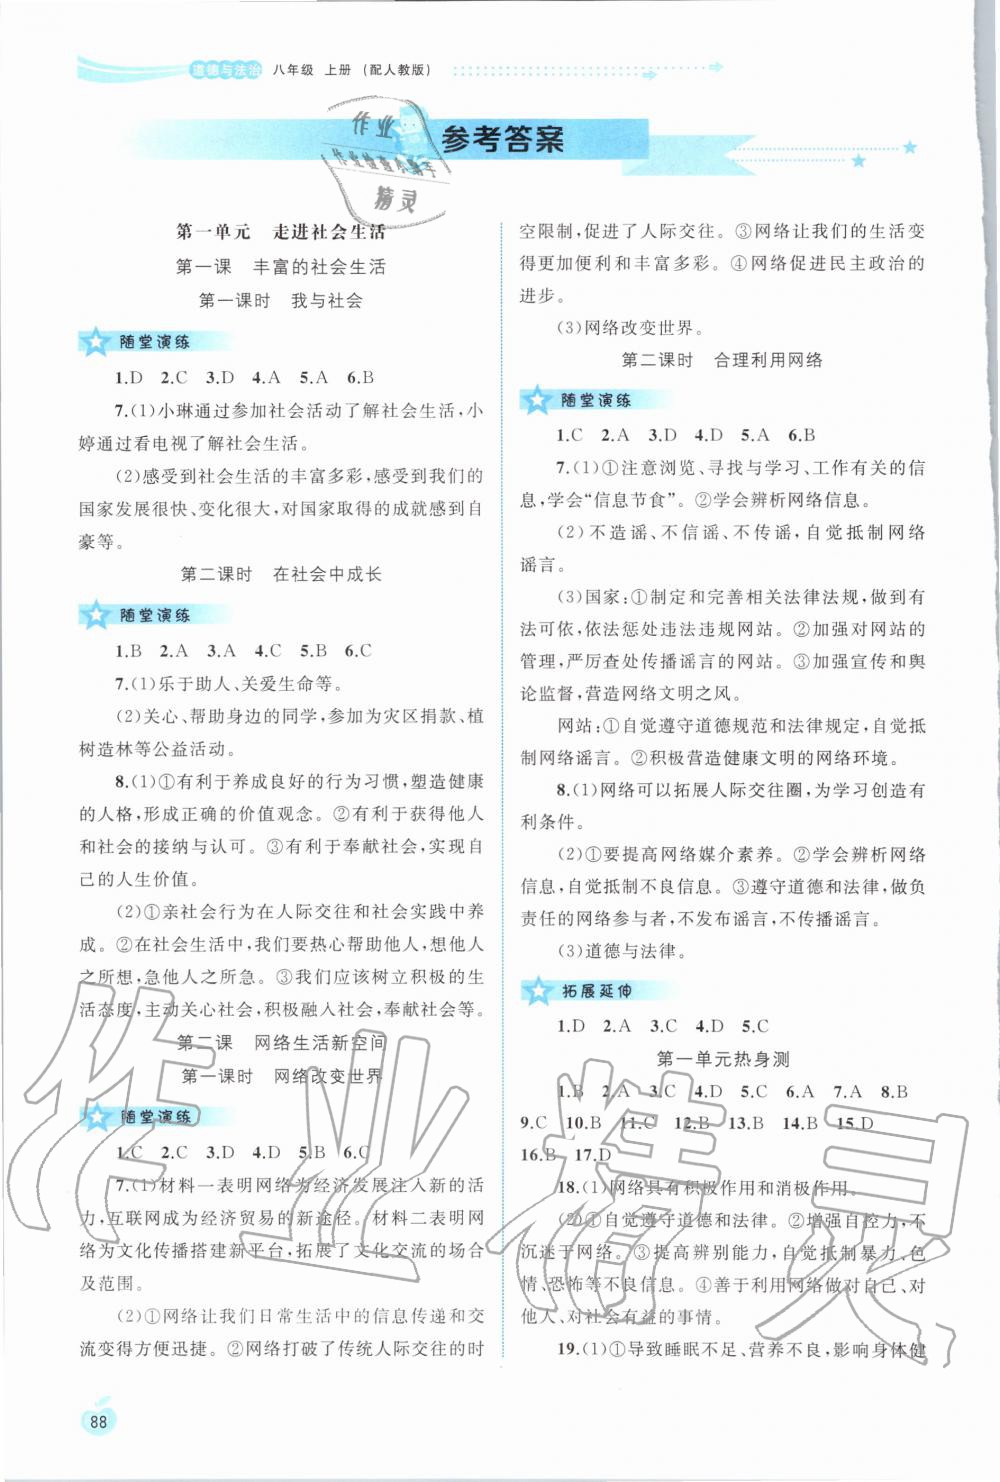 道德与法治 八年级 上册 (配人教版)
参考答案
作业
作业检查小帮手
精灵
第一单元 走进社会生活
第一课 丰富的社会生活
第一课时 我与社会
随堂演练
1.D 2.C 3.D 4.A 5.A 6.B
7.(1)小琳通过参加社会活动了解社会生活,小
婷通过看电视了解社会生活。
(2)感受到社会生活的丰富多彩,感受到我们的
国家发展很快、变化很大,对国家取得的成就感到自
豪等。
第二课时 在社会中成长
随堂演练
1.B 2.A 3.A 4.C 5.B 6.C
7.(1)乐于助人、关爱生命等。
(2)关心、帮助身边的同学,参加为灾区捐款、植
树造林等公益活动。
8.(1)①有利于养成良好的行为习惯,塑造健康
的人格,形成正确的价值观念。②有利于获得他人
和社会的接纳与认可。③有利于奉献社会,实现自
己的人生价值。
(2)①亲社会行为在人际交往和社会实践中养
成。②在社会生活中,我们要热心帮助他人,想他人
之所想,急他人之所急。③我们应该树立积极的生
活态度,主动关心社会,积极融入社会,奉献社会等。
第二课 网络生活新空间
第一课时 网络改变世界
随堂演练
1.C 2.C 3.D 4.D 5.B 6.C
7.(1)材料一表明网络为经济发展注入新的活
力,互联网成为经济贸易的新途径。材料二表明网
络为文化传播搭建新平台,拓展了文化交流的场合
及范围。
(2)①网络让我们日常生活中的信息传递和交
流变得方便迅捷。②网络打破了传统人际交往的时
88
空限制,促进了人际交往。③网络让我们的生活变
得更加便利和丰富多彩。④网络促进民主政治的
进步。
(3)网络改变世界。
第二课时 合理利用网络
随堂演练
1.C 2.A 3.D 4.D 5.A 6.B
7.(1)①注意浏览、寻找与学习、工作有关的信
息,学会“信息节食”。②学会辨析网络信息。
(2)不造谣、不信谣、不传谣,自觉抵制网络
谣言。
(3)国家:①制定和完善相关法律法规,做到有
法可依,依法惩处违法违规网站。②加强对网站的
管理,严厉查处传播谣言的网站。③加强宣传和舆
论监督,营造网络文明之风。
网站:①自觉遵守道德规范和法律规定,自觉抵
制网络谣言。②积极营造健康文明的网络环境。
8.(1)网络可以拓展人际交往圈,为学习创造有
利条件。
(2)①要提高网络媒介素养。②学会辨析网络
信息,自觉抵制不良信息。③遵守道德和法律,做负
责任的网络参与者,不发布谣言,不传播谣言。
(3)道德与法律。
拓展延伸
1.D 2.A 3.C 4.D 5.C
第一单元热身测
1.B 2.A 3.D 4.B 5.C 6.A 7.A 8.B
9.C 10.B 11.C 12.B 13.B 14.B 15.D
16.B 17.D
18.(1)网络具有积极作用和消极作用。
(2)①自觉遵守道德和法律。②增强自控力,不
沉迷于网络。③提高辨别能力,自觉抵制暴力、色
情、恐怖等不良信息。④善于利用网络做对自己、对
他人、对社会有益的事情。
19.(1)①导致睡眠不足、营养不良,影响身体健
作业精灵